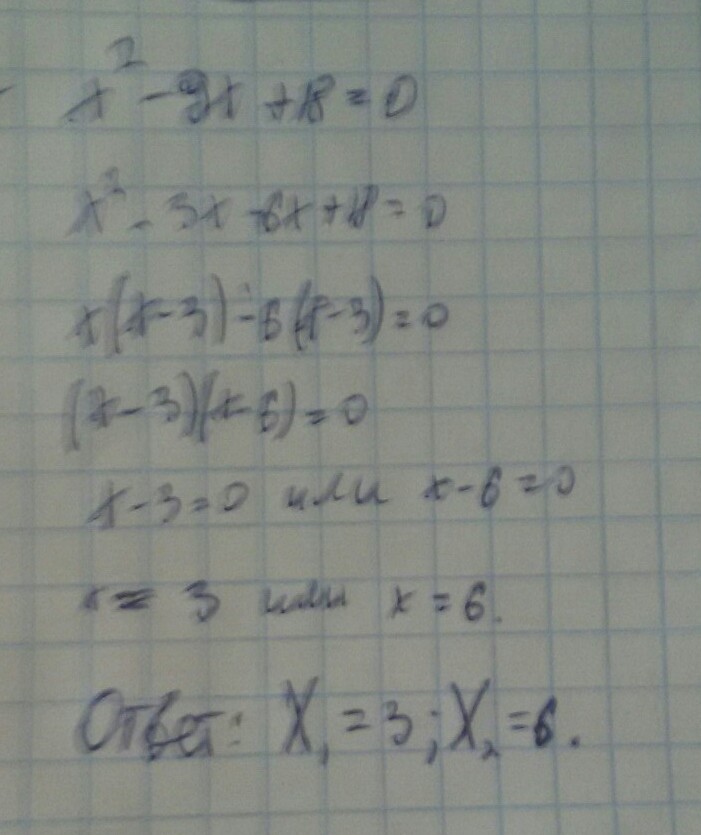 x² - 9x + 18 = 0
x² - 3x - 6x + 18 = 0
x(x-3) - 6(x-3) = 0
(x-3)(x-6) = 0
x-3=0 или x-6=0
x = 3 или x = 6.
Ответ: X₁ = 3; X₂ = 6.